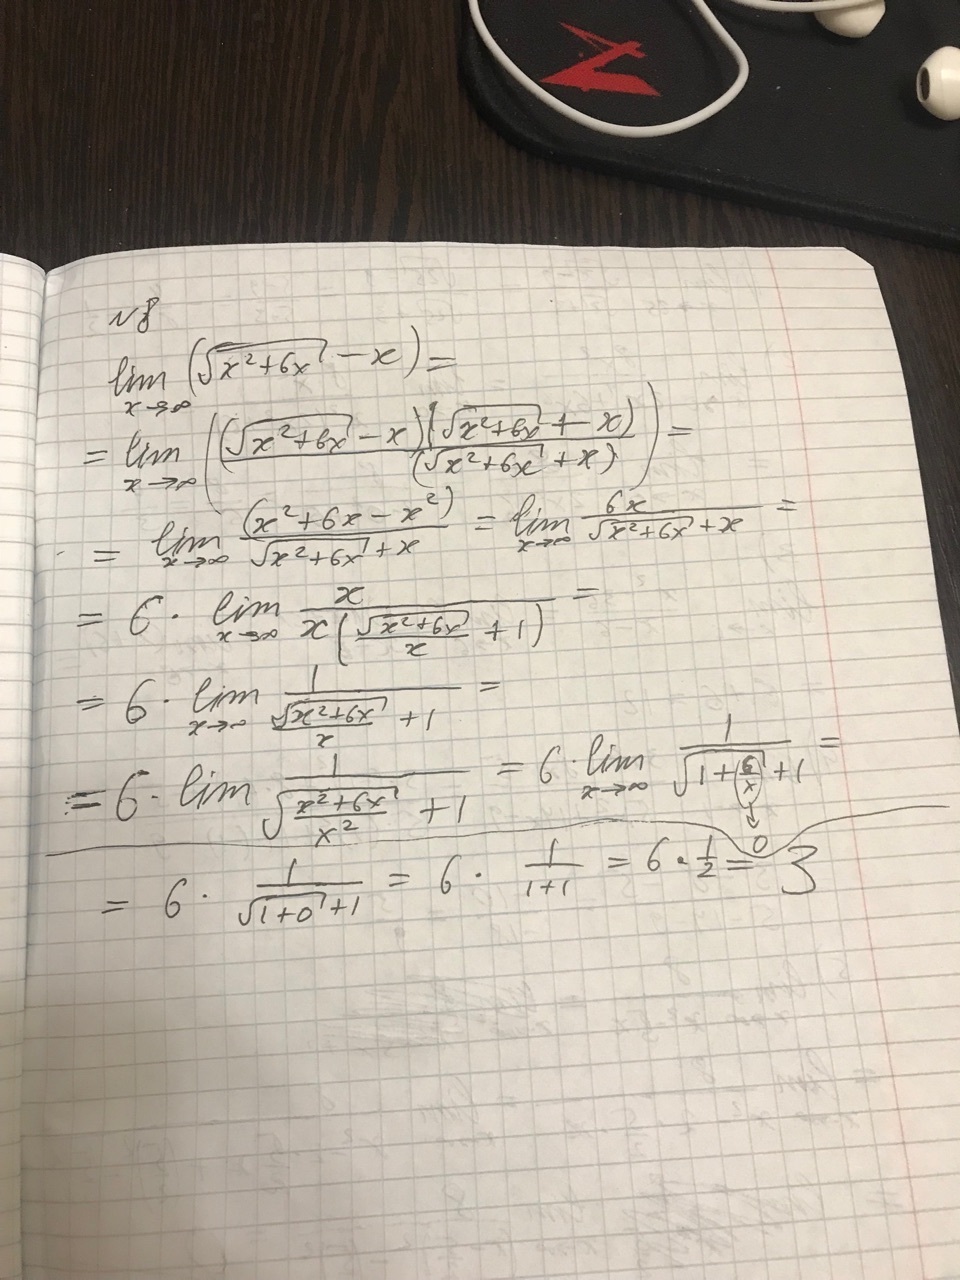 №8
lim x→∞ (√(x²+6x) − x) =
= lim x→∞ ( (√(x²+6x) − x)(√(x²+6x) + x) / (√(x²+6x) + x) ) =
= lim x→∞ (x²+6x−x²) / (√(x²+6x) + x) = lim x→∞ 6x / (√(x²+6x) + x) =
= 6 · lim x→∞ x / (x(√(x²+6x)/x + 1)) =
= 6 · lim x→∞ 1 / (√(x²+6x)/x + 1) =
= 6 · lim 1 / (√((x²+6x)/x²) + 1) = 6 · lim x→∞ 1 / (√(1 + 6/x) + 1) =
→ 0
= 6 · 1 / (√(1+0) + 1) = 6 · 1 / (1+1) = 6 · 1/2 = 3